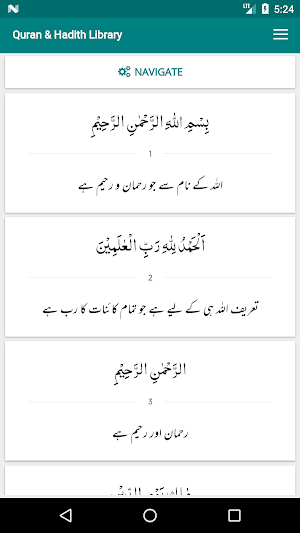 5:24
Quran & Hadith Library
NAVIGATE
بِسْمِ اللهِ الرَّحْمٰنِ الرَّحِيْمِ
1
اللہ کے نام سے جو رحمان و رحیم ہے
اَلْحَمْدُ لِلّٰهِ رَبِّ الْعٰلَمِيْنَ
2
تعریف اللہ ہی کے لیے ہے جو تمام کائنات کا رب ہے
الرَّحْمٰنِ الرَّحِيْمِ
3
رحمان اور رحیم ہے